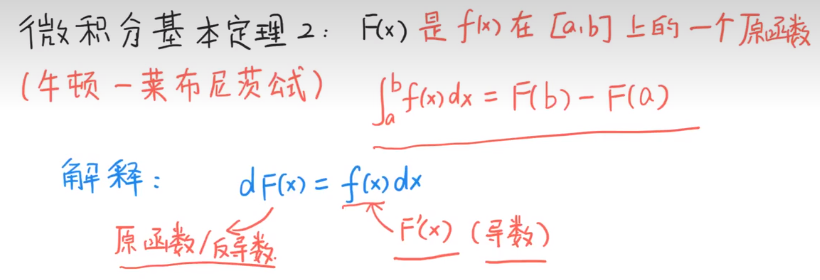 微积分基本定理2： F(x) 是 f(x) 在 [a,b] 上的一个原函数
(牛顿－莱布尼茨公式) ∫_a^b f(x)dx = F(b) - F(a)
解释： dF(x) = f(x)dx
原函数/反导数. F'(x) (导数)